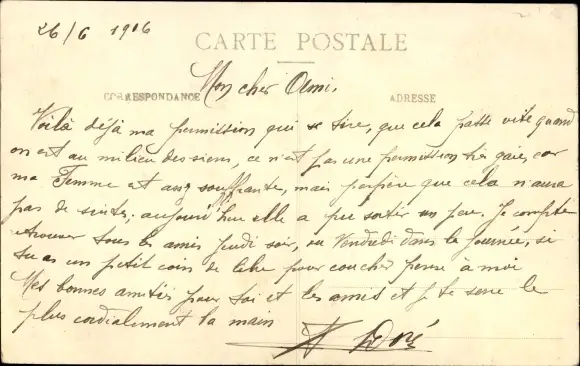 26/6 1916
CARTE POSTALE
CORRESPONDANCE
ADRESSE
Mon cher Ami.
Voilà déjà ma permission qui se tire, que cela passe vite quand
on est au milieu des siens, ce n'est pas une permission très gaie, car
ma Femme est assez souffrante, mais j'espère que cela n'aura
pas de suites; aujourd'hui elle a pu sortir un peu. Je compte
retrouver tous les amis jeudi soir, ou Vendredi dans la journée, si
tu as un petit coin de libre pour coucher pense à moi
Mes bonnes amitiés pour toi et les amis et je te serre le
plus cordialement la main